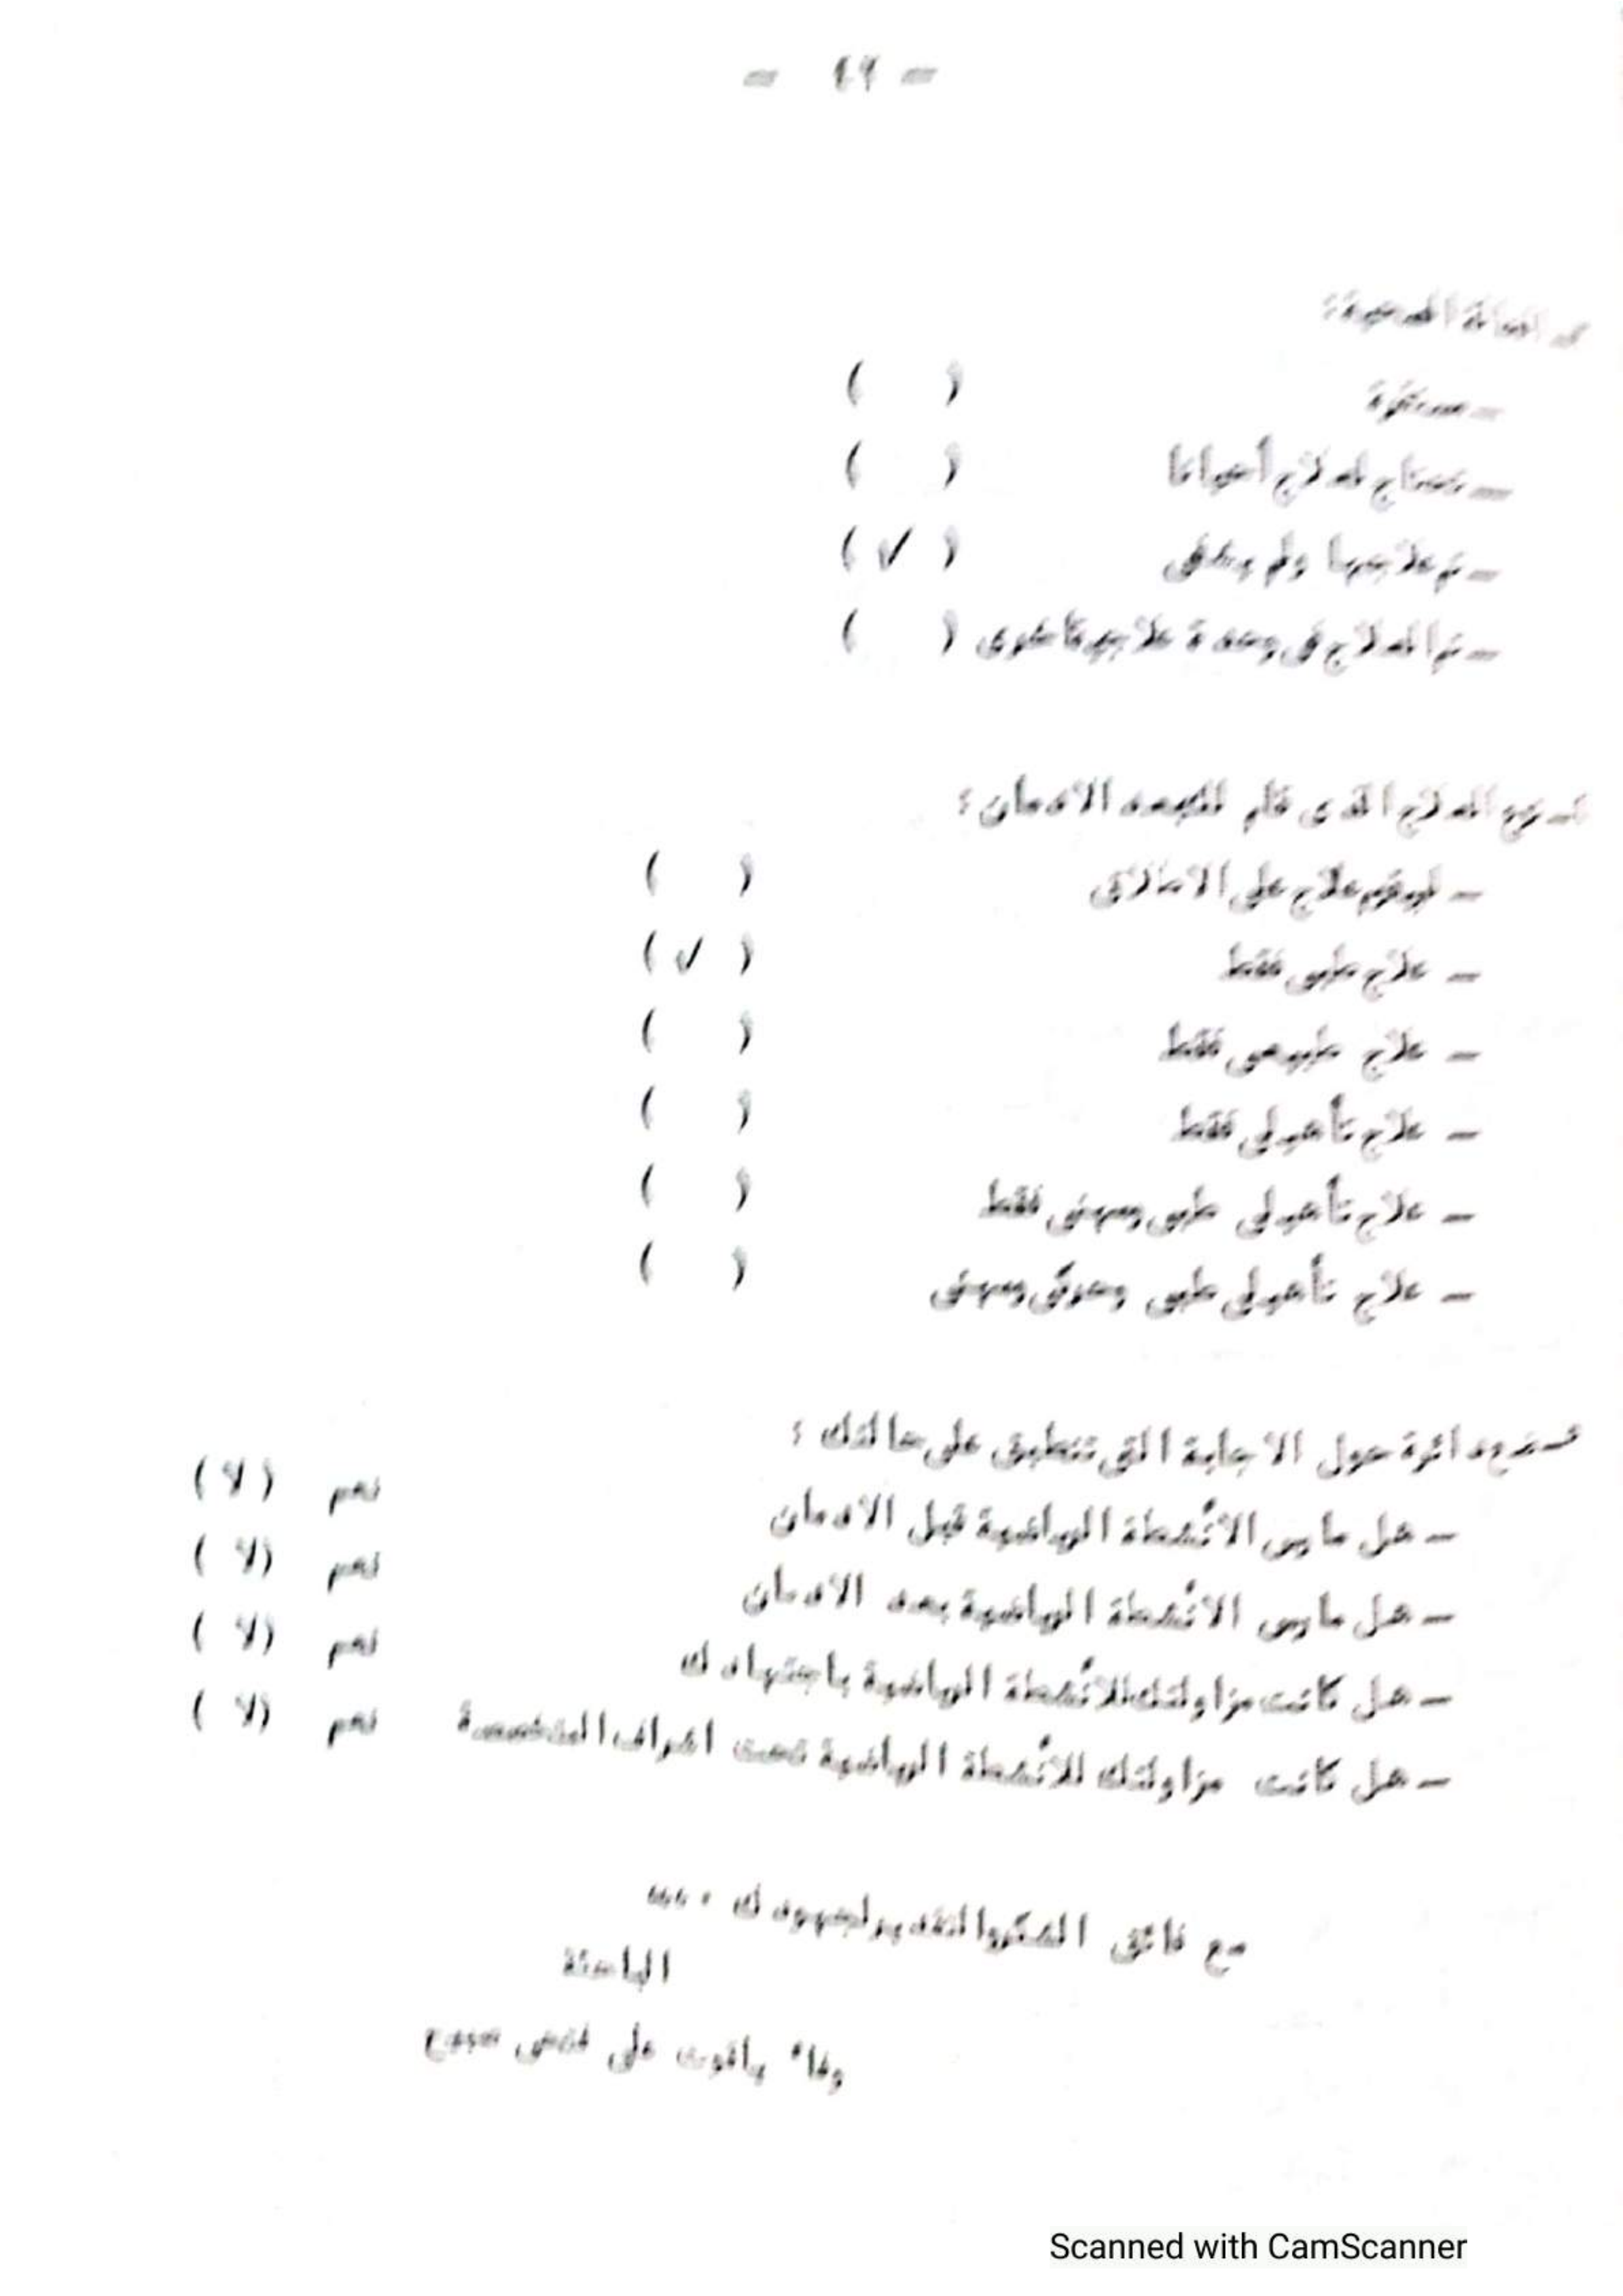 - ٤٩ -
الحالة الصحية:
- مستقرة ( )
- تحتاج لعلاج أحيانا ( )
- تم علاجها ولم يشفى ( ✓ )
- تم العلاج في وحدة علاجية أخرى ( )
العلاج الذى قدم للجسد الادمان :
- لم يقدم علاج على الاطلاق ( )
- علاج طبى فقط ( ✓ )
- علاج طبيعى فقط ( )
- علاج تأهيلى فقط ( )
- علاج تأهيلى طبى ومهنى فقط ( )
- علاج تأهيلى طبى وحرفى ومهنى ( )
ضع دائرة حول الاجابة التى تنطبق على حالتك :
- هل مارس الأنشطة الرياضية قبل الادمان نعم ( لا )
- هل مارس الأنشطة الرياضية بعد الادمان نعم ( لا )
- هل كانت مزاولتك للأنشطة الرياضية باجتهادك نعم ( لا )
- هل كانت مزاولتك للأنشطة الرياضية تحت اشراف المتخصصة نعم ( لا )
مع فائق الشكر والتقدير لجهودك ...
الباحثة
وفاء ياقوت على
Scanned with CamScanner